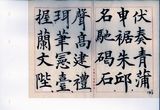 伏奏青蒲
曳裾朱邸
名馳碣石
聲高建禮
珥筆憲臺
握蘭文陛